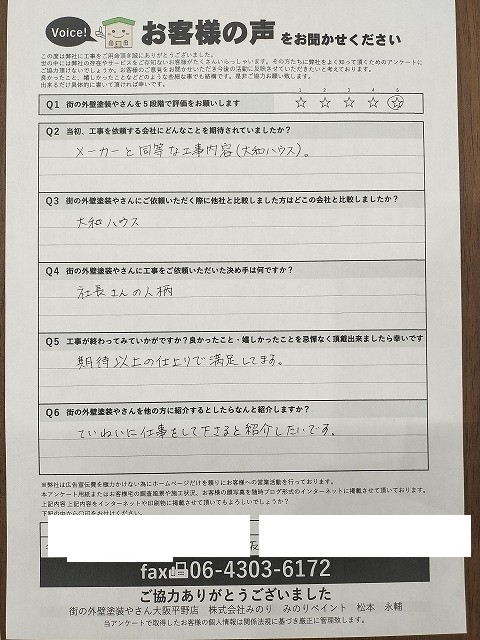 Voice!
お客様の声をお聞かせください
この度は弊社に工事をご用命頂き誠にありがとうございました。
世の中には弊社の存在やサービスをご存知ないお客様がたくさんいらっしゃいます。その方たちに弊社をよく知って頂くためのアンケートに
ご協力頂けないでしょうか。お客様のご意見をお聞かせいただき今後の活動に反映させていただきたいと考えております。
良かったこと、嬉しかったことなどどのような些細な事でも結構です。是非ご協力お願い致します。
出来るだけ具体的に書いて頂ければ幸いです。
Q1 街の外壁塗装やさんを5段階で評価をお願いします
1 2 3 4 5
☆ ☆ ☆ ☆ ☆
Q2 当初、工事を依頼する会社にどんなことを期待されていましたか?
メーカーと同等な工事内容(大和ハウス)。
Q3 街の外壁塗装やさんにご依頼いただく際に他社と比較しました方はどこの会社と比較しましたか?
大和ハウス
Q4 街の外壁塗装やさんに工事をご依頼いただいた決め手は何ですか?
社長さんの人柄
Q5 工事が終わってみていかがですか?良かったこと・嬉しかったことを忌憚なく頂戴出来ましたら幸いです
期待以上の仕上りで満足してます。
Q6 街の外壁塗装やさんを他の方に紹介するとしたらなんと紹介しますか?
ていねいに仕事をして下さると紹介したいです。
※弊社は広告宣伝費を極力かけない為にホームページだけを頼りにお客様への営業活動を行っております。
本アンケート用紙またはお客様宅の調査風景や施工状況、お客様の顔写真を随時ブログ形式のインターネットに掲載させて頂いております。
上記内容上記内容をインターネットや印刷物に掲載させて頂いてもよろしいでしょうか?
下記の中から〇印をお付けください。
fax 06-4303-6172
ご協力ありがとうございました
街の外壁塗装やさん大阪平野店 株式会社みのり みのりペイント 松本 永輔
当アンケートで取得したお客様の個人情報は関係法規に基づき厳正に管理致します。